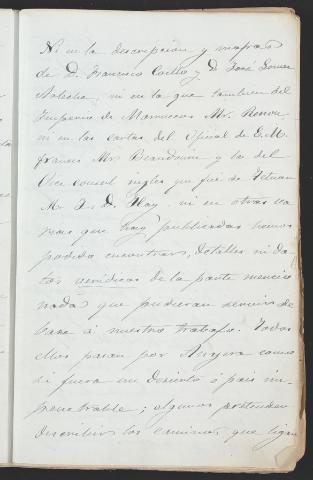 Ni en la descripcion y mapas
de D. Francisco Coello y D. José Gomez
Arteche, ni en la que tambien del
Imperio de Marruecos Mr. Renou,
ni en las cartas del Oficial de E. M.
frances Mr. Beaudouin y la del
Vice consul ingles que fué de Tetuan
Mr. J. D. Hay, ni en otras va
rias que hay publicadas hemos
podido encontrar, detalles ni da
tos verídicos de la parte mencio
nada que pudieran servir de
base á nuestro trabajo. Todos
ellos pasan por Anyera como
si fuera un desierto ó pais im
penetrable; algunos pretenden
describir los caminos que ligan